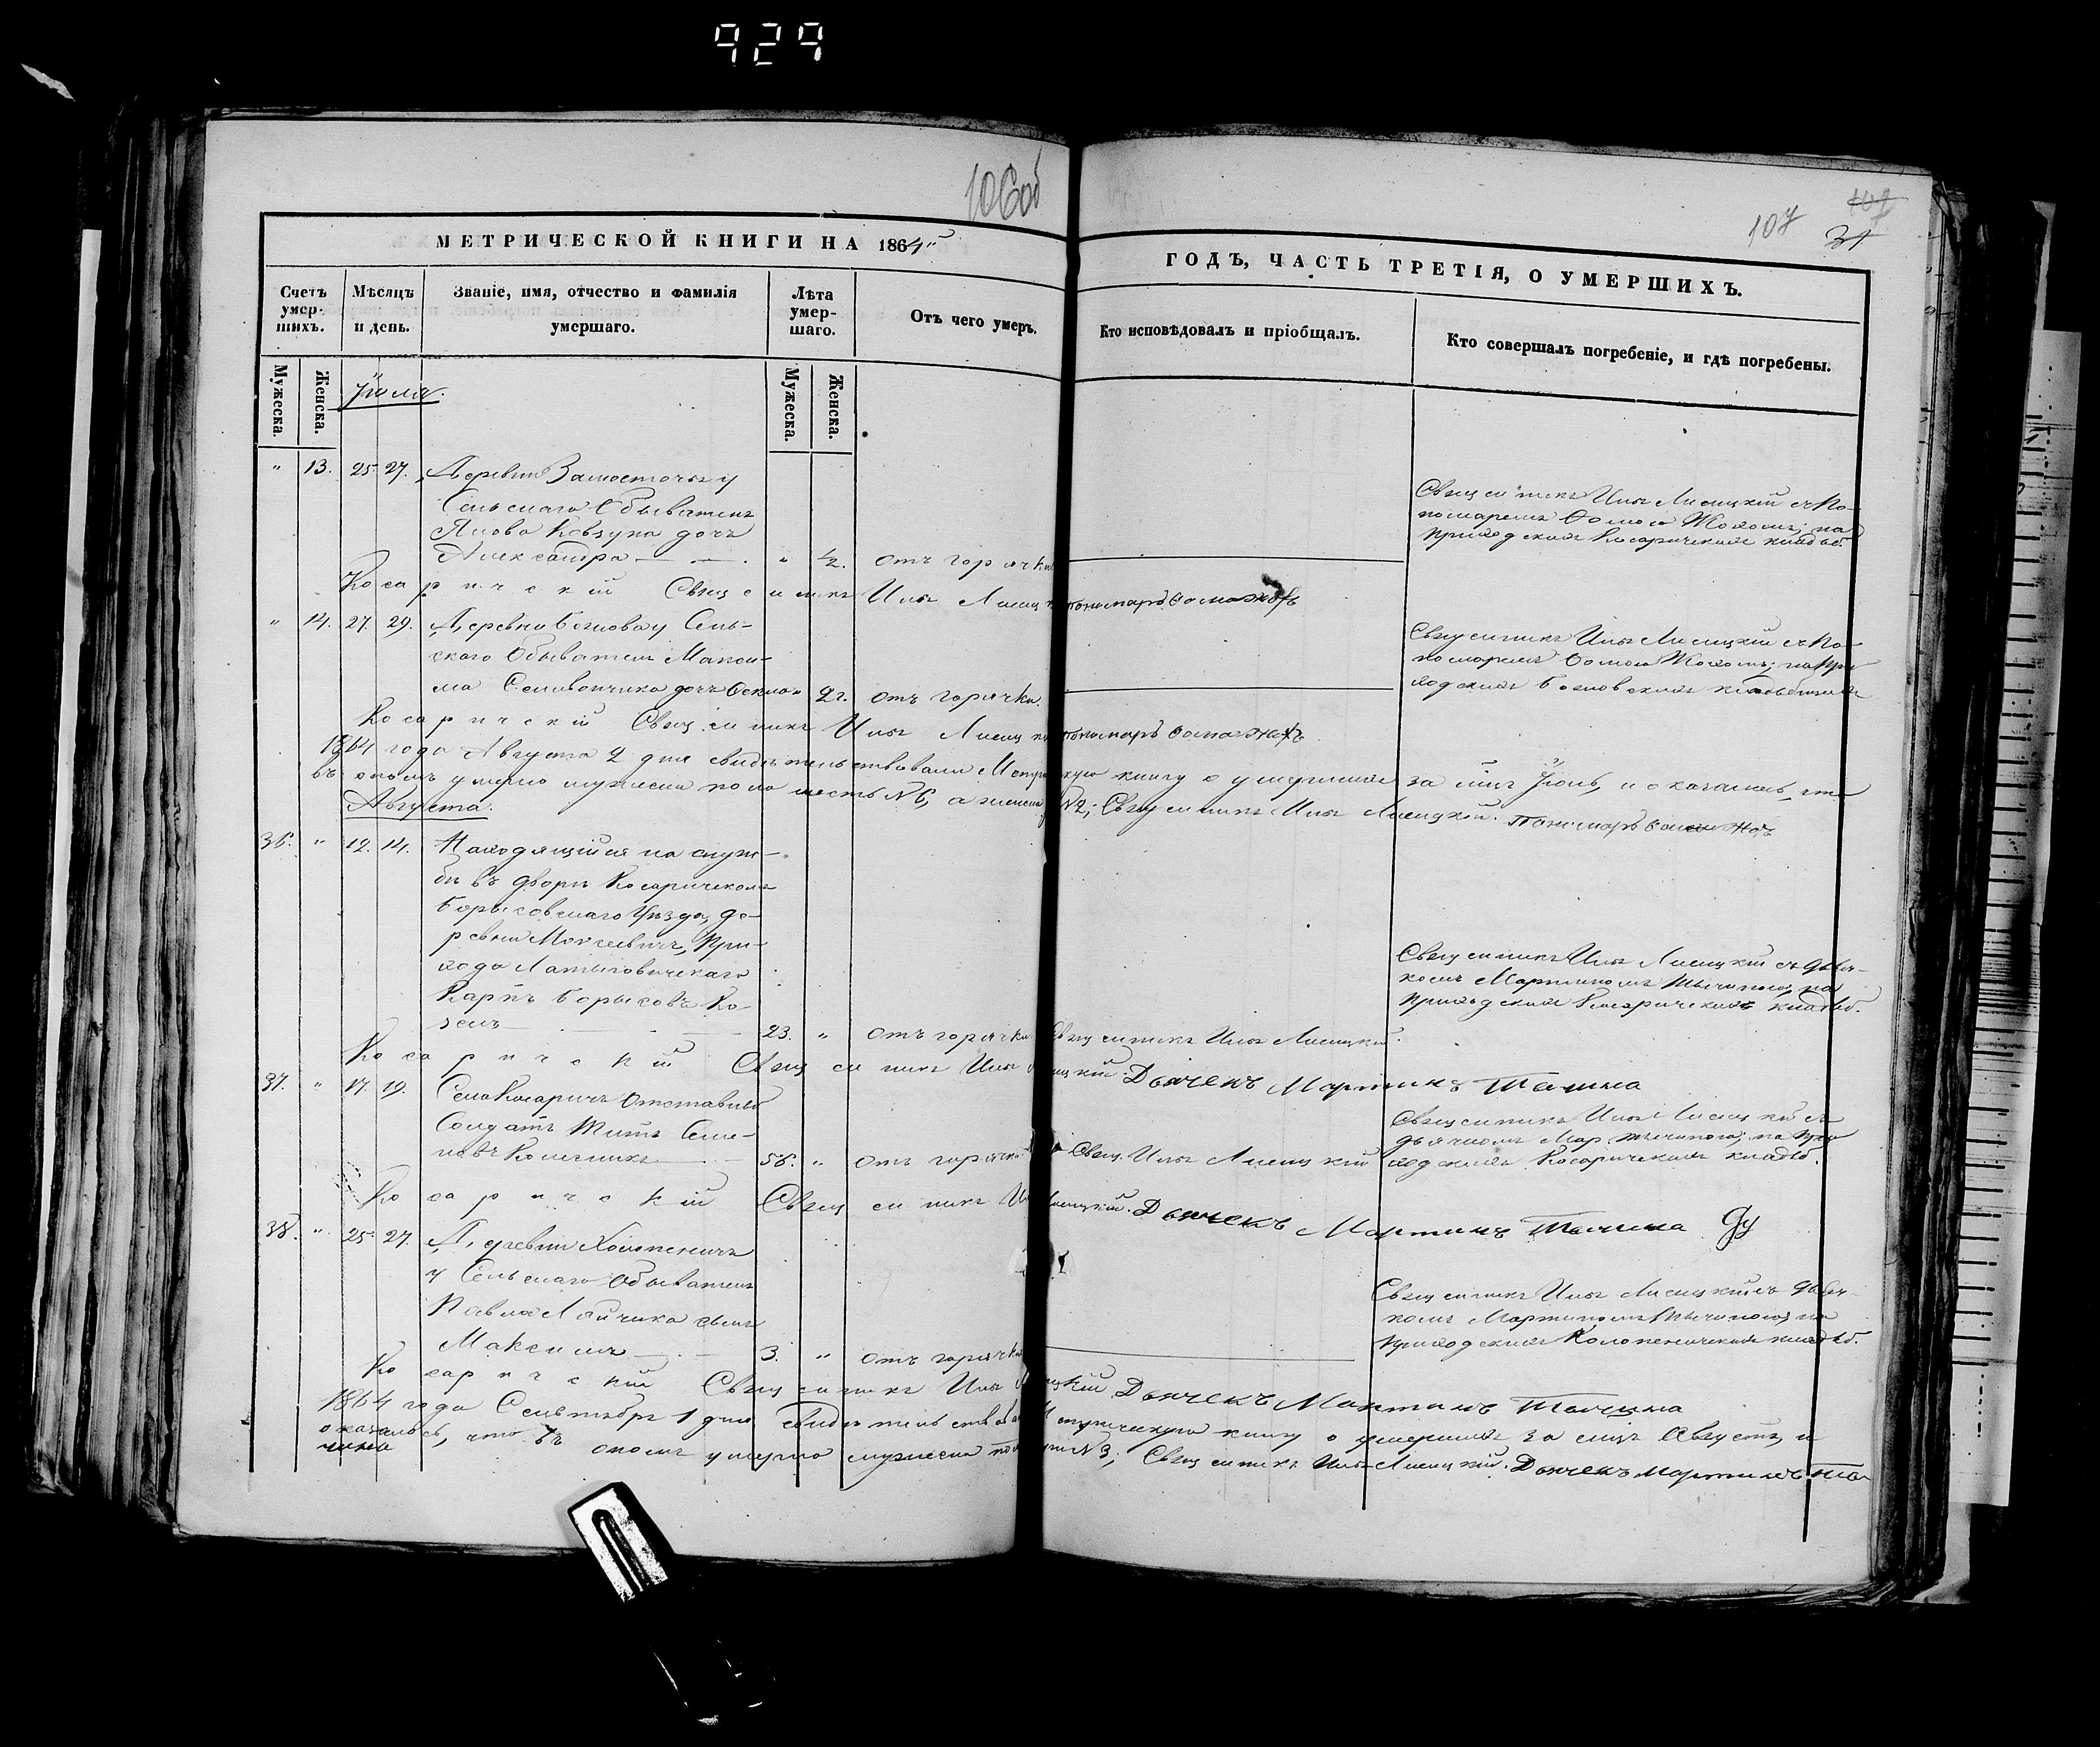 929
106об
107
МЕТРИЧЕСКОЙ КНИГИ НА 1864й
ГОДЪ, ЧАСТЬ ТРЕТІЯ, О УМЕРШИХЪ.
Счетъ умер-шихъ.
Мѣсяцъ и день.
Званіе, имя, отчество и фамилія умершаго.
Лѣта умер-шаго.
Отъ чего умеръ.
Кто исповѣдовалъ и пріобщалъ.
Кто совершалъ погребеніе, и гдѣ погребены.
Мужеска.
Женска.
Мужеска.
Женска.
Іюля.
" 13. 25. 27. Деревни Замосточья у
Сельскаго Обывателя
Якова Ковзуна дочь
Александра " ½. отъ горячки
Священникъ Илья Лисицкій съ По-
номаремъ Ѳомою Жохомъ; на
приходскихъ Косаричскихъ кладб.
Косаричскій Священникъ Илья Лисиц Пономаръ Ѳома Жохъ
" 14. 27. 29. Деревни у Сель-
скаго Обывателя Макси-
ма дочь 2г. отъ горячки.
Священникъ Илья Лисицкій съ По-
номаремъ Ѳомою Жохомъ; на При-
ходскихъ кладбищахъ
Косаричскій Священникъ Илья Лисиц Пономаръ Ѳома Жохъ
1864 года Августа 2 дня свидѣтельствовали Метрическую книгу о умершихъ за мцъ Іюль, и оказалось, что
въ ономъ умерло мужеска пола шесть №6, а женска №2; Священникъ Илья Лисицкій. Пономаръ Ѳома Жохъ
Августа.
36. " 12. 14. Находящійся на служ-
бѣ въ дворѣ Косаричскомъ
Борисовскаго Уѣзда, де-
ревни При-
хода Латыговичскаго
Карпъ Борисовъ Ко-
зелъ 23. " отъ горячки Священникъ Илья Лисицкій.
Священникъ Илья Лисицкій съ дьяч-
комъ Мартиномъ Тычиною, на
приходскихъ Косаричскихъ кладб.
Косаричскій Священникъ Илья Лисицкій. Дьячекъ Мартинъ Тычина
37. " 17. 19. Села Косаричъ Отставный
Солдатъ Титъ Семе-
новъ 56. " отъ горячки Свящ. Илья Лисицкій
Священникъ Илья Лисицкій съ
дьячкомъ Мар. Тычиною; на при-
ходскихъ Косаричскихъ кладб.
Косаричскій Священникъ Илья Лисицкій. Дьячекъ Мартинъ Тычина
38. " 25. 27. Деревни Холопеничъ
у Сельскаго Обывателя
Павла Лайчика сынъ
Максимъ 3. " отъ горячки
Священникъ Илья Лисицкій съ дьяч-
комъ Мартиномъ Тычиною на
приходскихъ Холопеничскихъ кладб.
Косаричскій Священникъ Илья Лисицкій Дьячекъ Мартинъ Тычина
1864 года Сентября 1 дня свидѣтельствовали Метрическую книгу о умершихъ за мцъ Августъ, и
оказалось, что въ ономъ умерло мужеска пола три №3; Священникъ Илья Лисицкій. Дьячекъ Мартинъ Ты-
чина